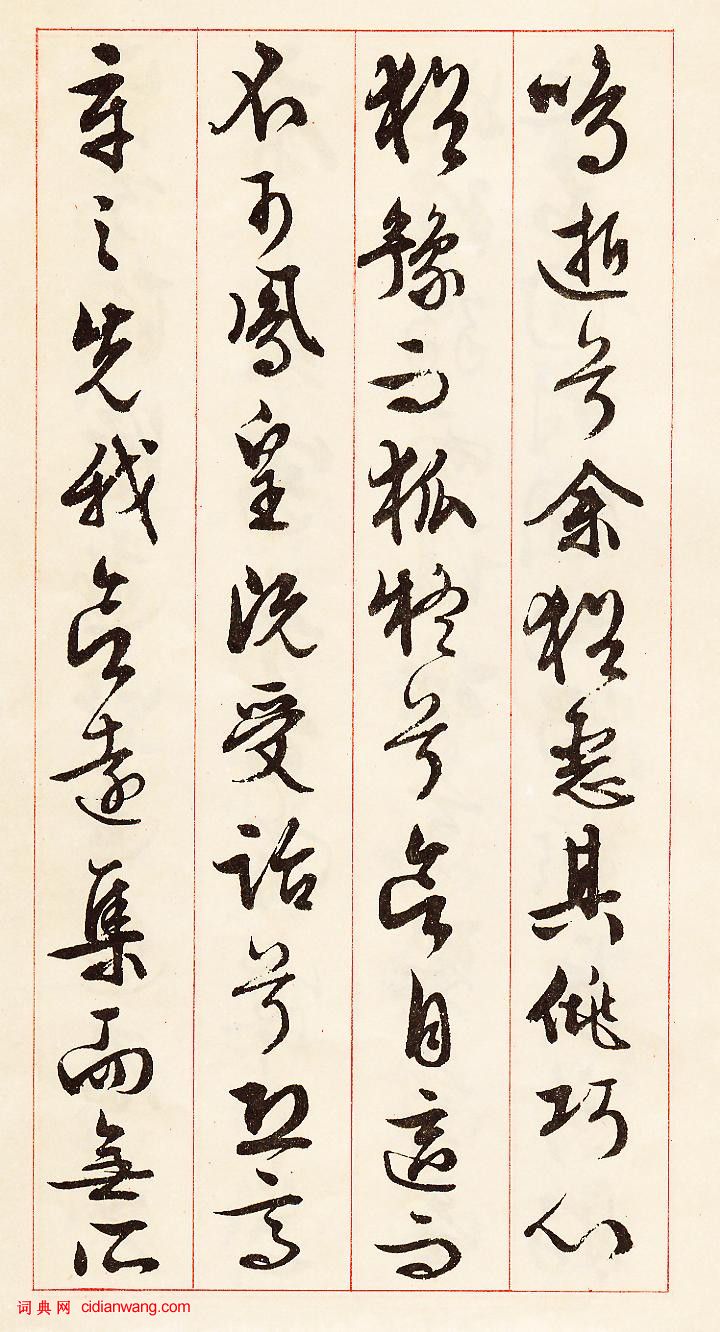 鳴逝兮余猶惡其佻巧心
猶豫而狐疑兮欲自適而
不可鳳皇既受詒兮恐高
辛之先我欲遠集而無所
词典网 cidianwang.com